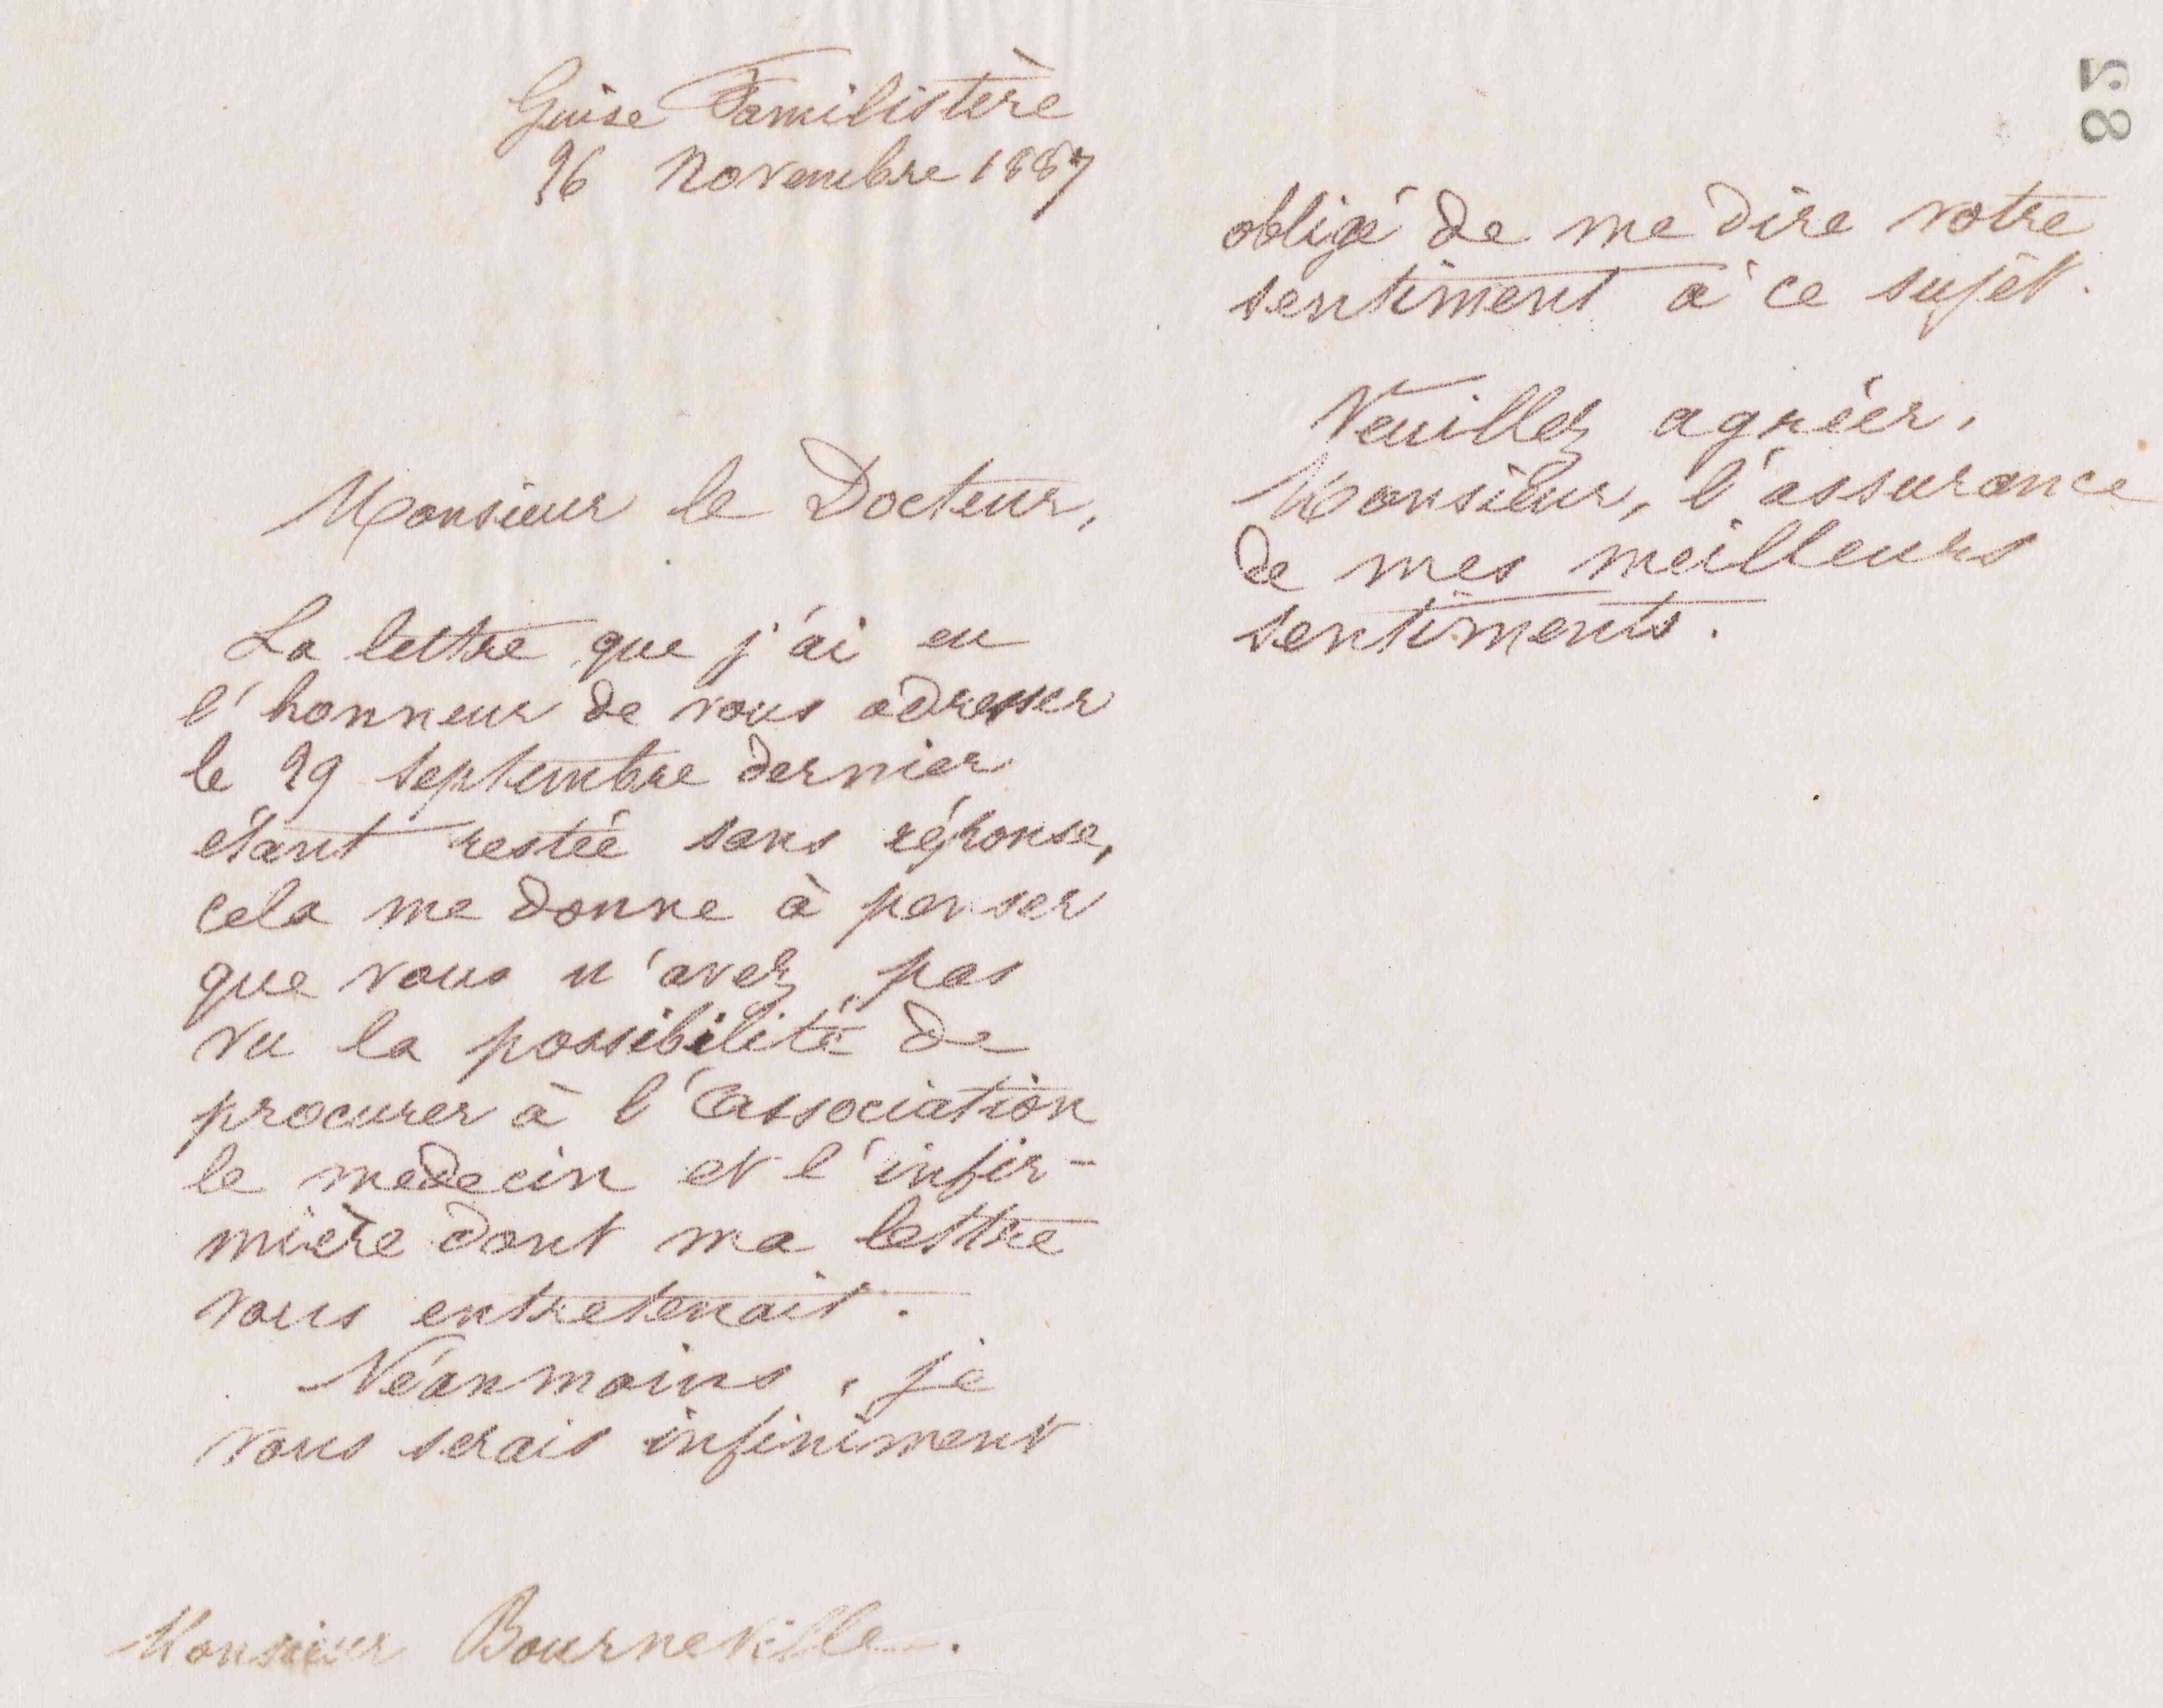 Guise Familistère
26 Novembre 1887
Monsieur le Docteur,
La lettre que j'ai eu
l'honneur de vous adresser
le 29 septembre dernier
étant restée sans réponse,
cela me donne à penser
que vous n'avez pas
vu la possibilité de
procurer à l'Association
le médecin et l'infir-
mière dont ma lettre
vous entretenait.
Néanmoins, je
vous serais infiniment
Monsieur Bourneville.
85
obligé de me dire votre
sentiment à ce sujet.
Veuillez agréer,
Monsieur, l'assurance
de mes meilleurs
sentiments.